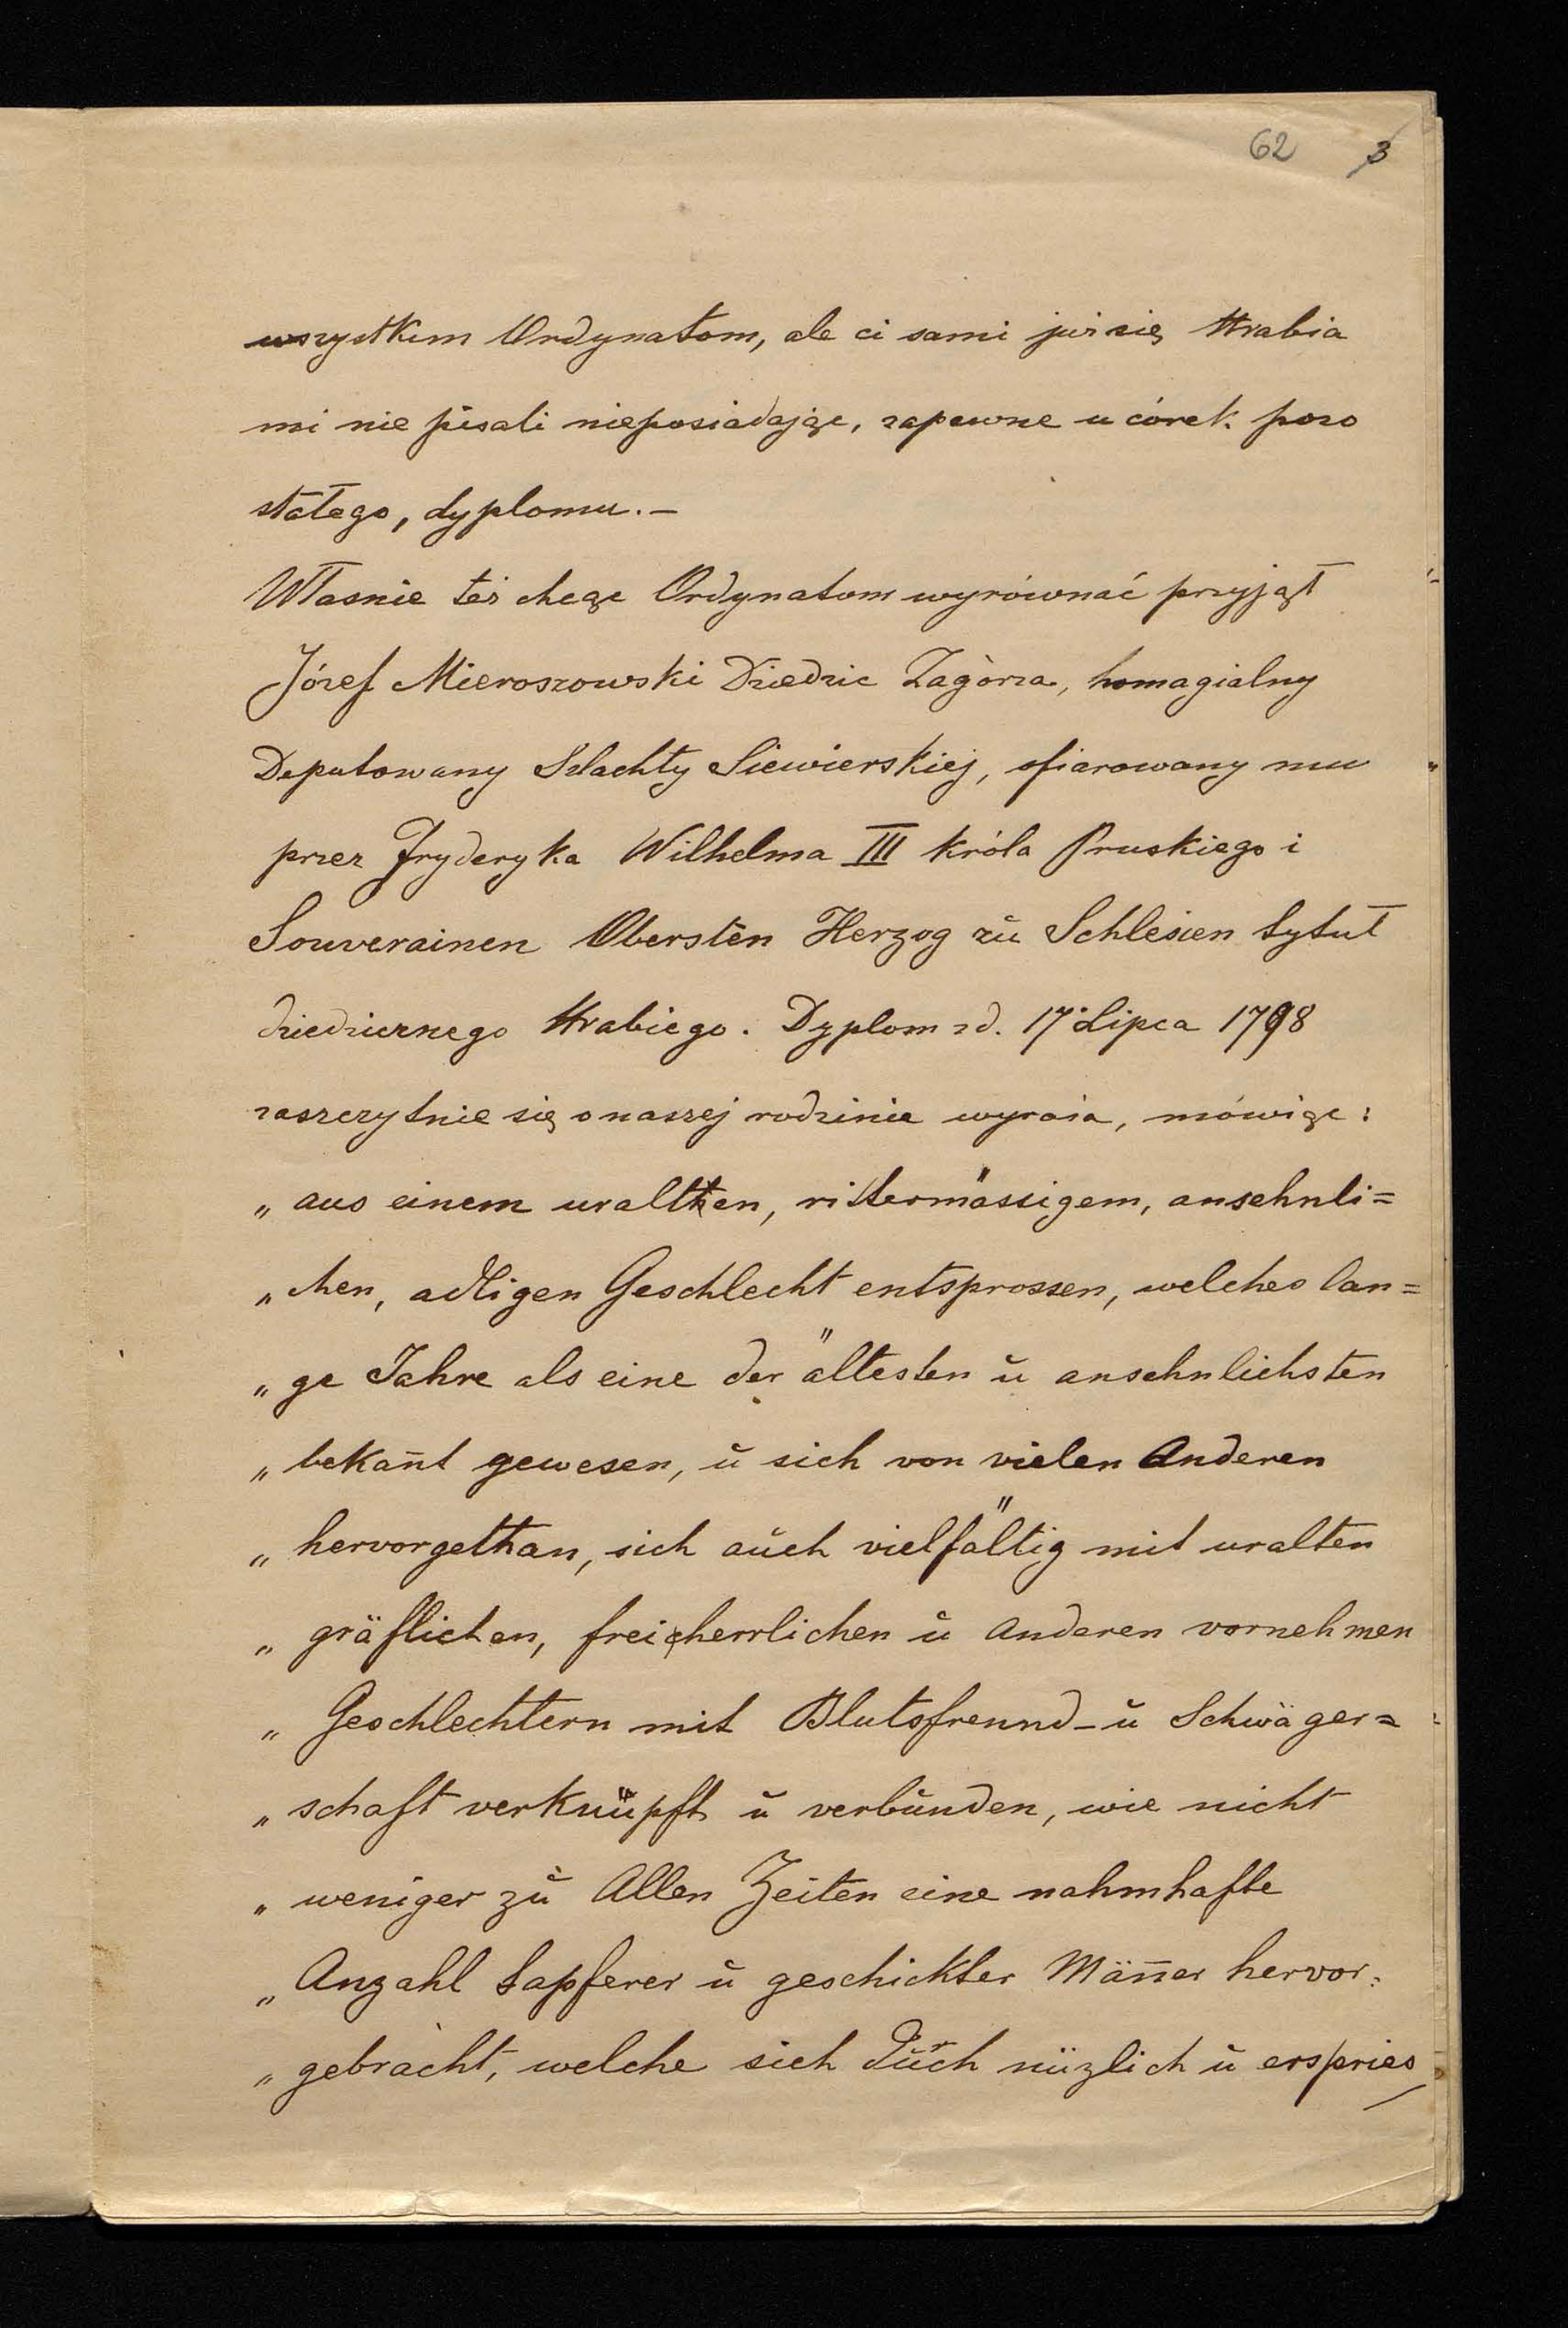 62 3
wszystkim Ordynatom, ale ci sami już się Hrabia
mi nie pisali nieposiadając, zapewne u córek pozo
stałego, dyplomu. —
Własnie też chcąc Ordynatom wyrównać przyjął
Józef Mieroszowski Dziedzic Zagórza, homagialny
Deputowany Szlachty Siewierskiej, ofiarowany mu
przez Fryderyka Wilhelma III króla Pruskiego i
Souverainen Obersten Herzog zŭ Schlesien tytuł
dziedzicznego Hrabiego. Dyplom zd. 17 Lipca 1798
zaszczytnie się o naszej rodzinie wyraża, mówiąc:
„ aus einem uralten, rittermässigem, ansehnli=
„ chen, adligen Geschlecht entsprossen, welches lan=
„ ge Jahre als eine der ältesten ŭ ansehnlichsten
„ bekañt gewesen, ŭ sich von vielen Anderen
„ hervorgethan, sich aŭch vielfältig mit uralten
„ gräflichen, freiherrlichen ŭ Anderen vornehmen
„ Geschlechtern mit Blutsfreund- ŭ Schwäger=
„ schaft verknüpft ŭ verbŭnden, wie nicht
„ weniger zŭ Allen Zeiten eine nahmhafte
„ Anzahl tapferer ŭ geschickter Mäñer hervor=
„ gebracht, welche sich dŭrch nüzlich ŭ erspries